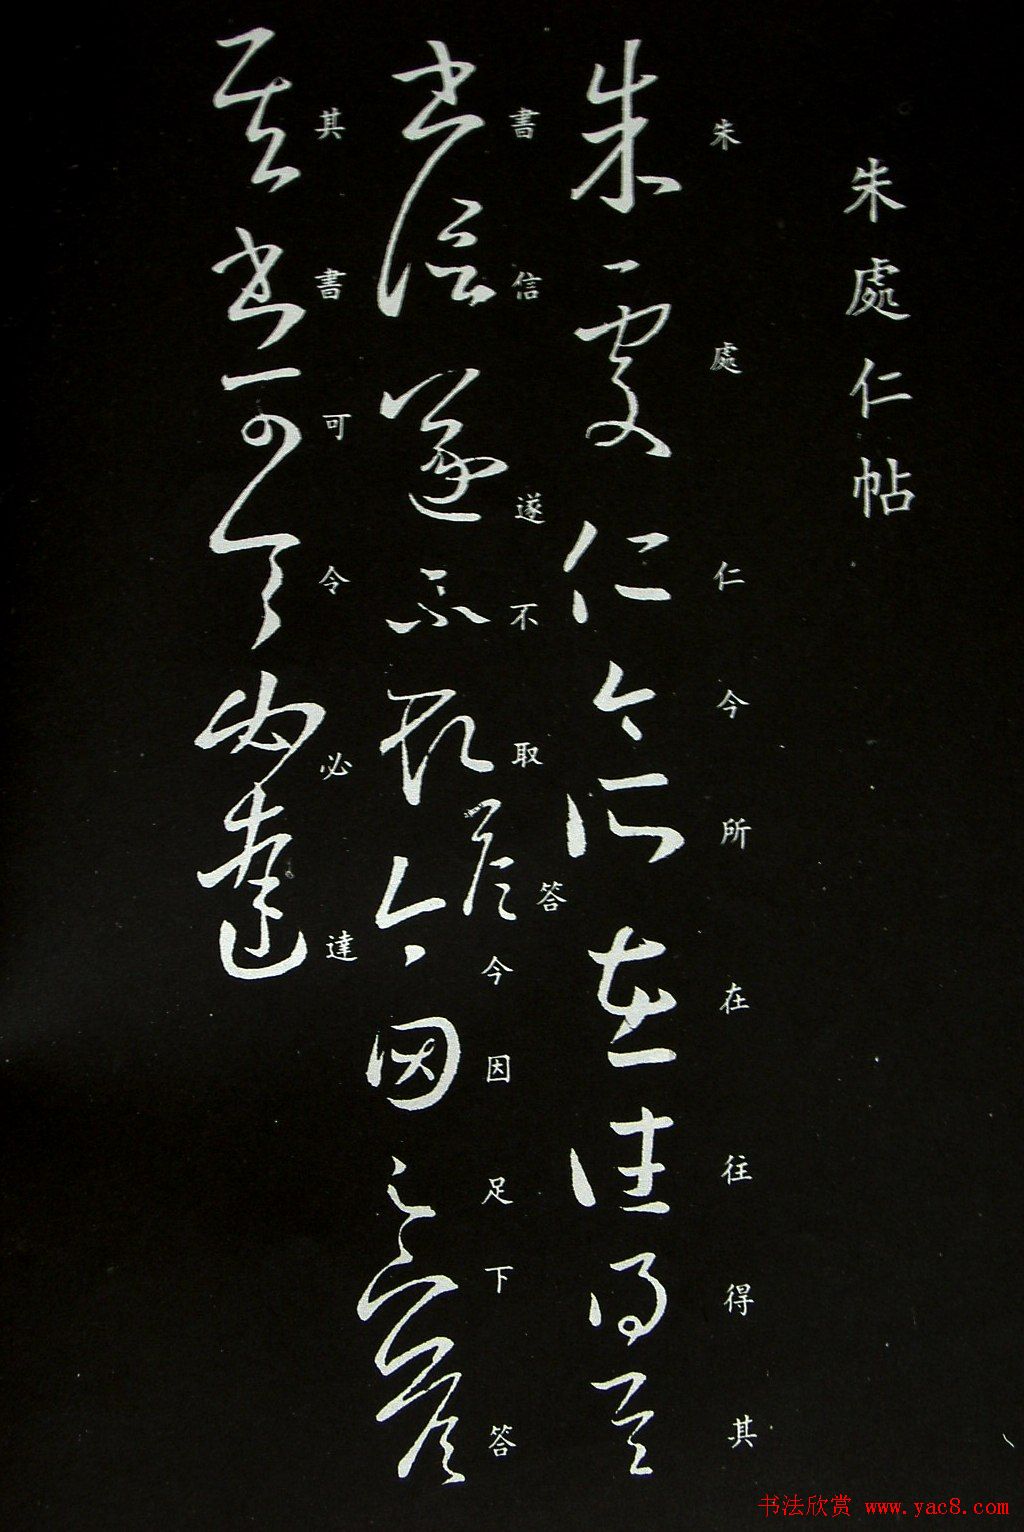 朱處仁帖
朱處仁今所在往得其
書信遂不取答今因足下答
其書可令必達
书法欣赏 www.yac8.com